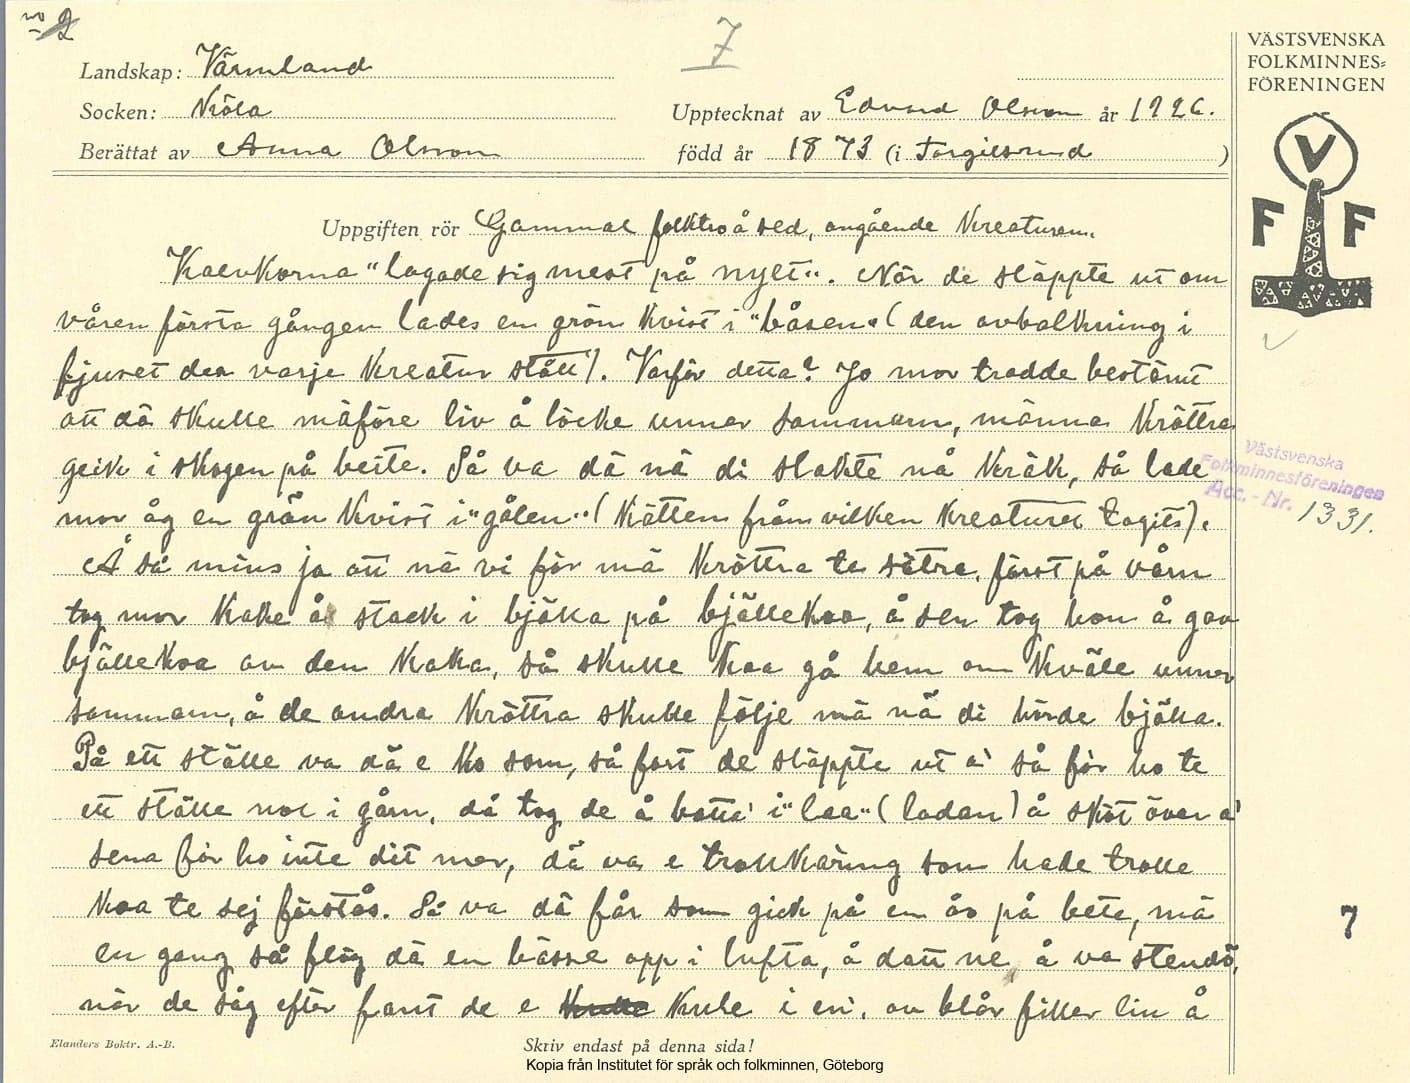 no 2
7
Landskap: Värmland
Socken: Köla
Upptecknat av Edvard Olsson år 1926.
Berättat av Anna Olsson
född år 1873 (i Torgilsrud)
VÄSTSVENSKA
FOLKMINNES=
FÖRENINGEN
V
F F
Uppgiften rör Gammal folktro å sed, angående Kreaturen.
Kalvkorna "lagade sig mest på nylt". När de släppte ut om
våren första gången lades en grön kvist i "båsen" (den avbalkning i
fjuset der varje kreatur stått). Varför detta? Jo mor trodde bestämt
att dä skulle mäföre liv å löcke unner sommarn, männa kröttra
geck i skogen på beite. Så va dä nä di slakte nå kräk, så lade
mor åg en grön kvist i "gålen" (kätten från vilken kreaturet tagits).
Å så mins ja att nä vi för mä kröttra te sätra, först på vårn
tog mor kake å stack i bjälla på bjällekoa, å sen tog hon å gav
bjällekoa av den kaka, så skulle koa gå hem om kväle unner
sommarn, å de andra kröttra skulle följe mä nä di hörde bjälla.
På ett ställe va dä e ko som, så fort de släppte ut a' så för ho te
ett ställe nol i gårn, då tog de å batt a' i "laa" (ladan) å sköt över a'
sena för ho inte dit mer, dä va e trollkäring som hade trolle
koa te sej förstås. Så va dä får som gick på en ås på bete, mä
en gang så flög dä en bässe opp i lufta, å datt ne å va stendö,
när de såg efter fant de e kule i en, av blår filler lin å
Västsvenska
Folkminnesföreningen
Acc.-Nr. 1331.
7
Elanders Boktr. A.-B.
Skriv endast på denna sida!
Kopia från Institutet för språk och folkminnen, Göteborg